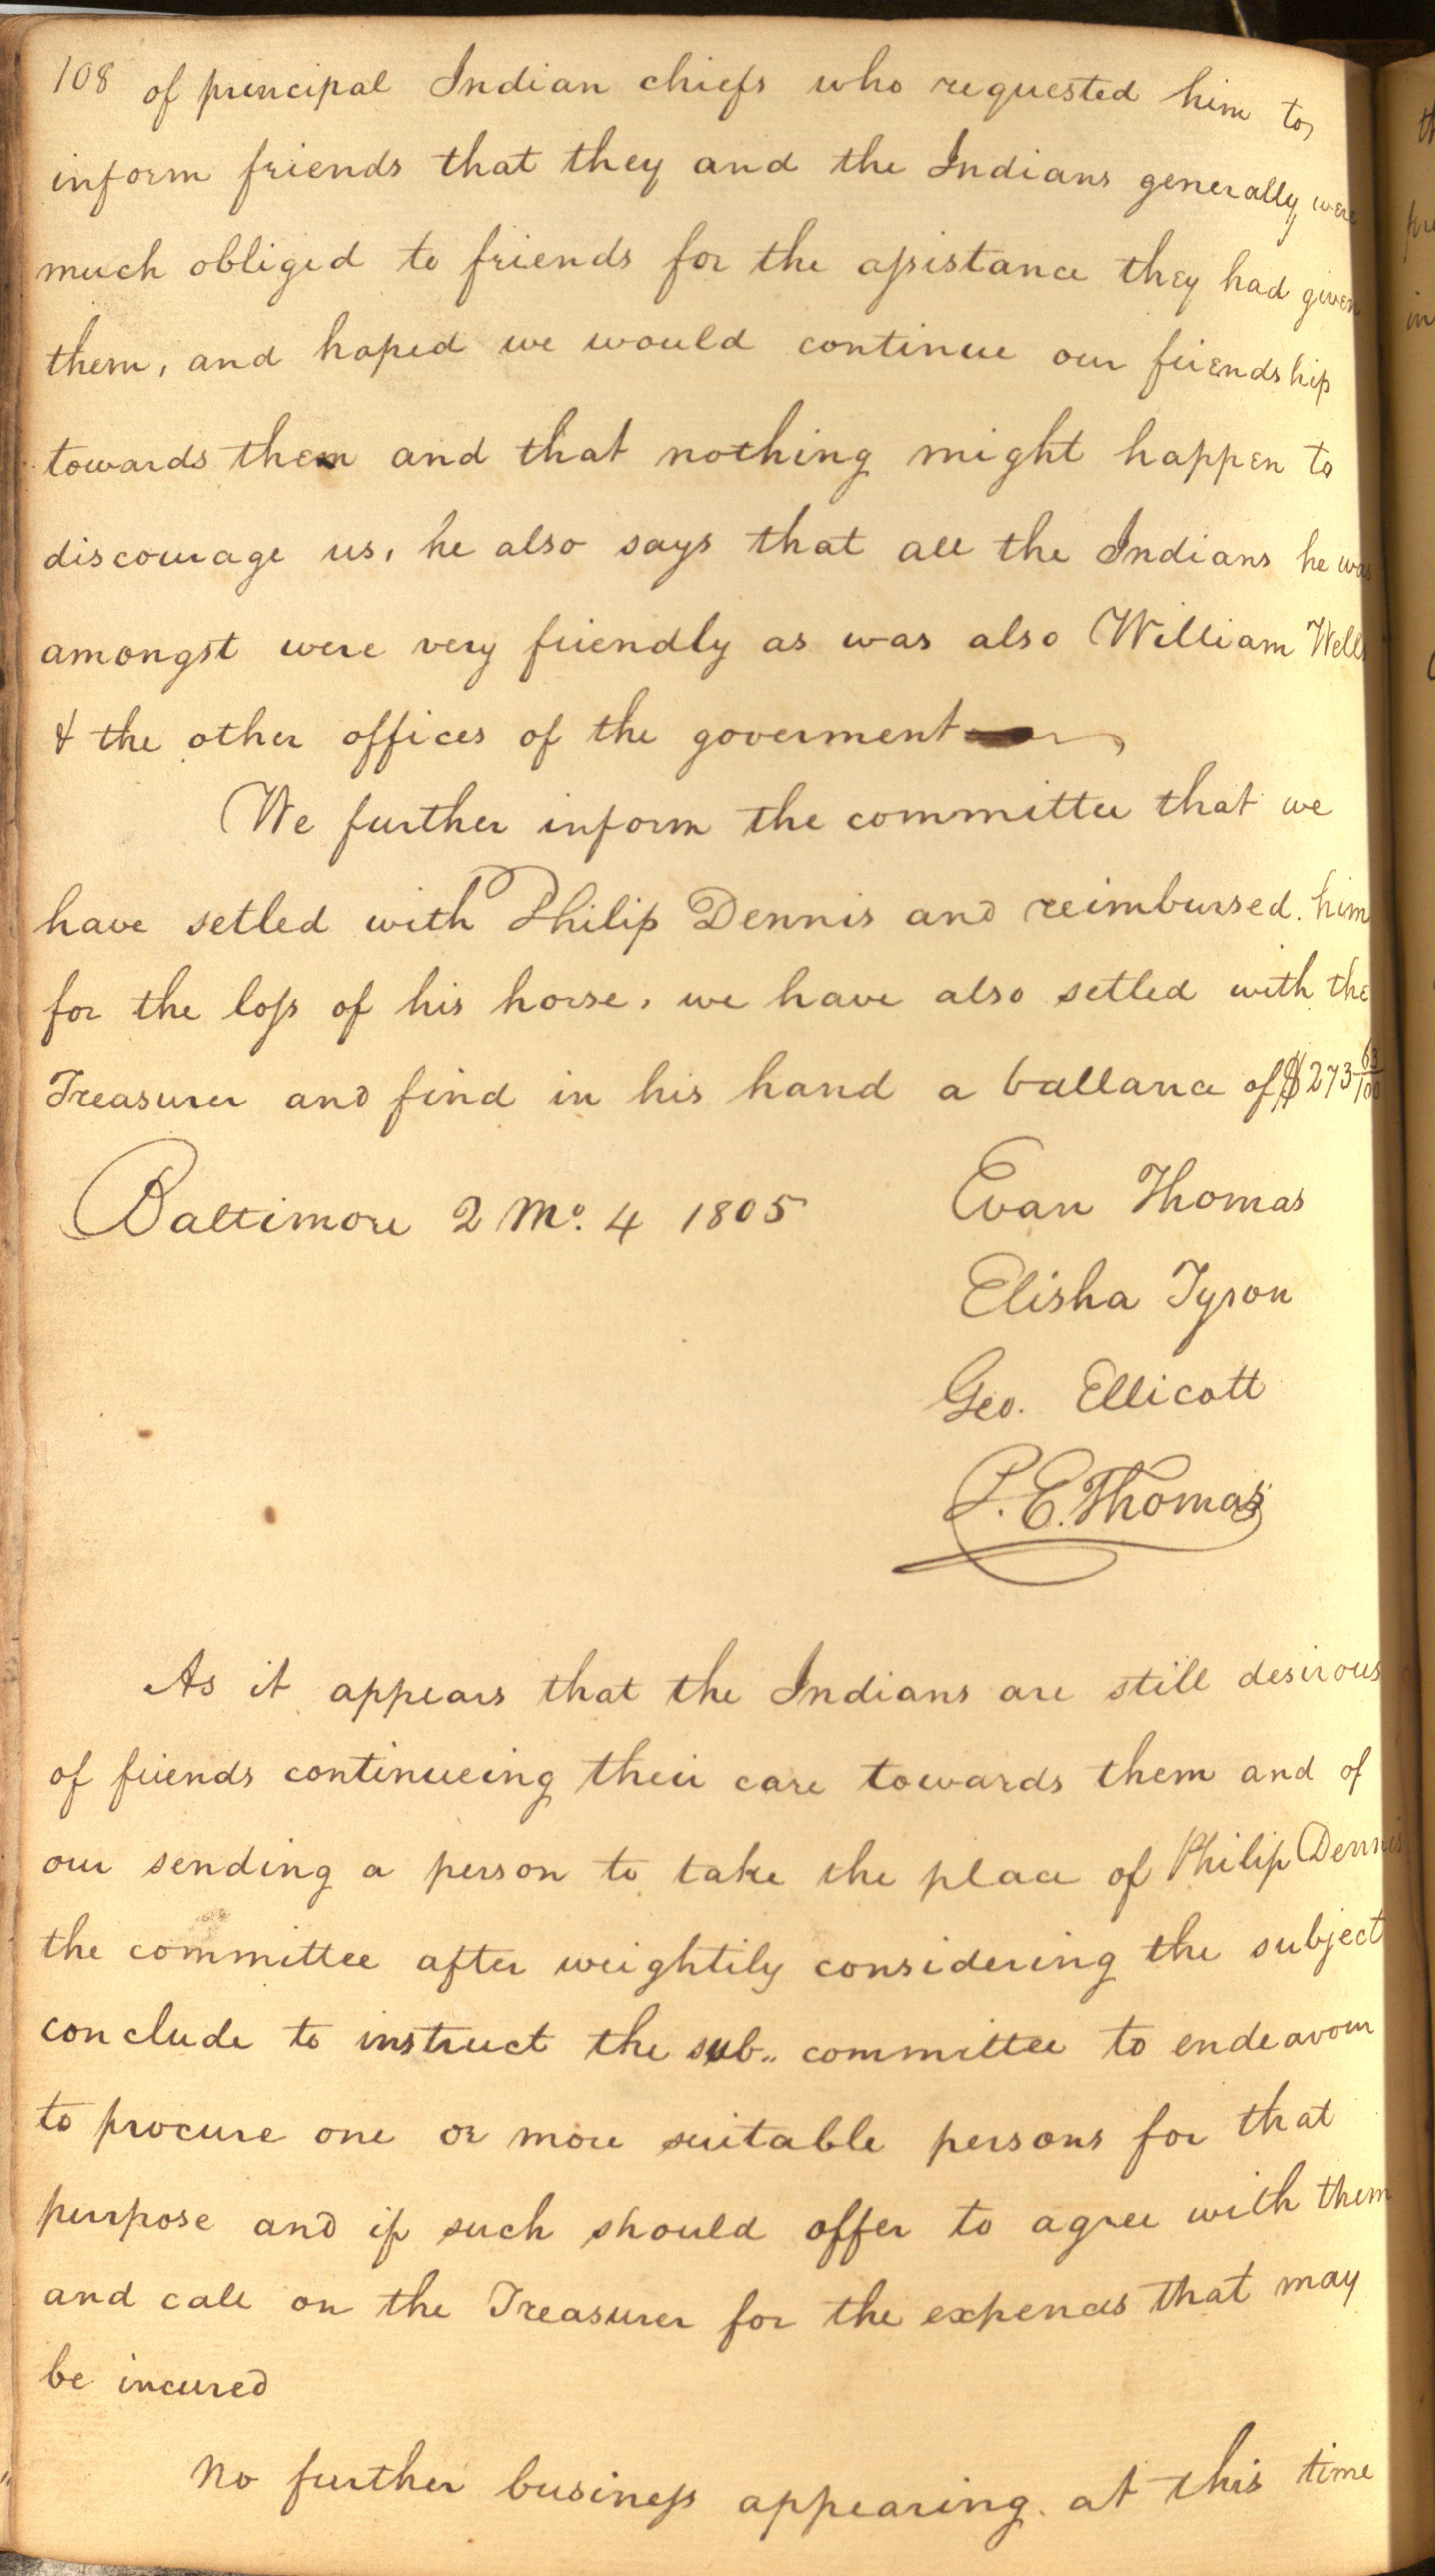 108 of principal Indian chiefs who requested him to
inform friends that they and the Indians generally were
much obliged to friends for the assistance they had given
them, and hoped we would continue our friendship
towards them and that nothing might happen to
discourage us, he also says that all the Indians he was
amongst were very friendly as was also William Wells
& the other offices of the goverment
We further inform the committee that we
have setled with Philip Dennis and reimbursed him
for the loss of his horse, we have also setled with the
Treasurer and find in his hand a ballance of $273 63/100
Baltimore 2 Mo. 4 1805 Evan Thomas
Elisha Tyson
Geo. Ellicott
P. E. Thomas
As it appears that the Indians are still desirous
of friends continueing their care towards them and of
our sending a person to take the place of Philip Dennis
the committee after weightily considering the subject
conclude to instruct the sub.. committee to endeavour
to procure one or more suitable persons for that
purpose and if such should offer to agree with them
and call on the Treasurer for the expences that may
be incured
No further business appearing at this time